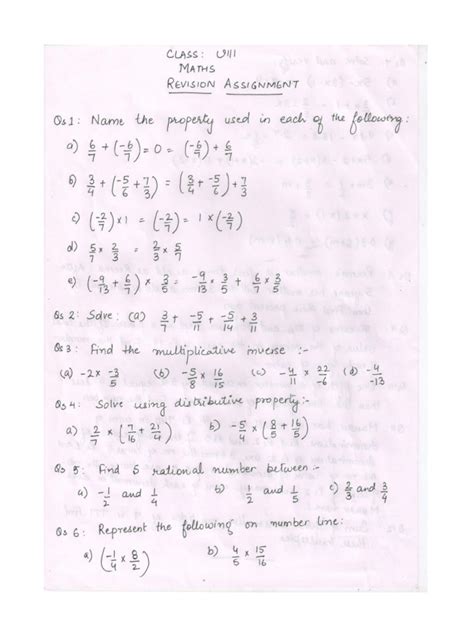 CLASS: VIII
MATHS
REVISION ASSIGNMENT
Qs1: Name the property used in each of the following:
a) 6/7 + (-6/7) = 0 = (-6/7) + 6/7
b) 3/4 + (-5/6 + 7/3) = (3/4 + -5/6) + 7/3
c) (-2/7) × 1 = (-2/7) = 1 × (-2/7)
d) 5/7 × 2/3 = 2/3 × 5/7
e) (-9/13 + 6/7) × 3/5 = -9/13 × 3/5 + 6/7 × 3/5
Qs 2: Solve: (a) 3/7 + -5/11 + -5/14 + 3/11
Qs 3: Find the multiplicative inverse :-
(a) -2 × -3/5 (b) -5/8 × 16/15 (c) -4/11 × 22/-6 (d) -4/-13
Qs 4: Solve using distributive property:-
a) 2/7 × (7/16 + 21/4) b) -5/4 × (8/5 + 16/5)
Qs 5: Find 6 rational number between :-
a) -1/2 and 1/4 b) 1/2 and 1/5 c) 2/3 and 3/4
Qs 6: Represent the following on number line:
a) (-1/4 × 8/2) b) 4/5 × 15/16